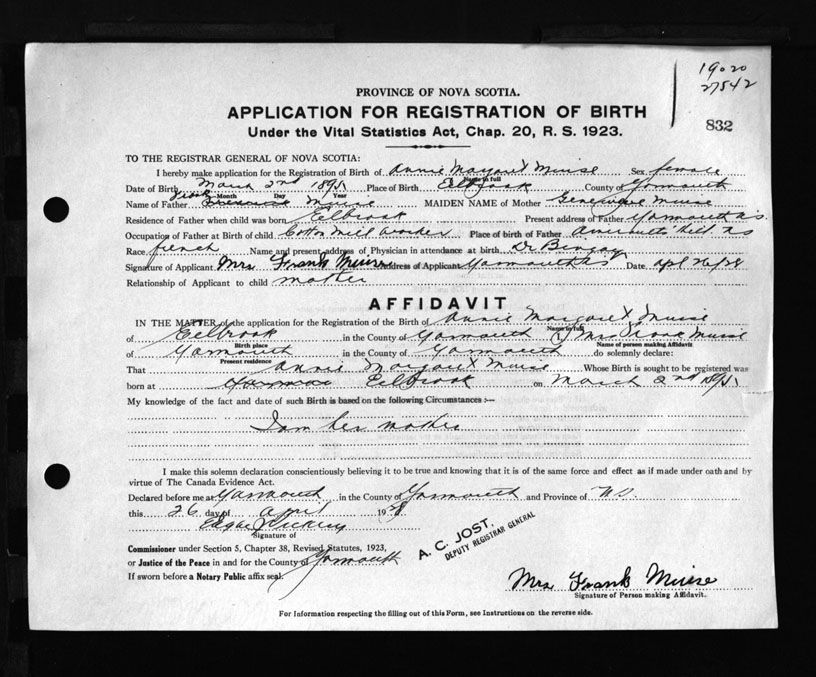 19020
27542
832
PROVINCE OF NOVA SCOTIA.
APPLICATION FOR REGISTRATION OF BIRTH
Under the Vital Statistics Act, Chap. 20, R. S. 1923.
TO THE REGISTRAR GENERAL OF NOVA SCOTIA:
I hereby make application for the Registration of Birth of Annie Margaret Muise Sex female
Name in full
Date of Birth March 2nd 1895 Place of Birth Eelbrook County of Yarmouth
Month Day Year
Name of Father Frank Muise MAIDEN NAME of Mother Genevieve Muise
Residence of Father when child was born Eelbrook Present address of Father Yarmouth N.S.
Occupation of Father at Birth of child Cotton Mill worker Place of birth of Father Amiraults Hill NS
Race french Name and present address of Physician in attendance at birth Dr
Signature of Applicant Mrs Frank Muise Address of Applicant Yarmouth NS Date Apl 26/28
Relationship of Applicant to child mother
AFFIDAVIT
IN THE MATTER of the application for the Registration of the Birth of Annie Margaret Muise
Name in full
of Eelbrook in the County of Yarmouth I Mrs Frank Muise
Birth place Name of person making Affidavit
of Yarmouth in the County of Yarmouth do solemnly declare:
Present residence
That Annie Margaret Muise Whose Birth is sought to be registered was
born at Eelbrook on March 2nd 1895
My knowledge of the fact and date of such Birth is based on the following Circumstances :—
I am her mother
I make this solemn declaration conscientiously believing it to be true and knowing that it is of the same force and effect as if made under oath and by
virtue of The Canada Evidence Act.
Declared before me at Yarmouth in the County of Yarmouth and Province of N.S.
this 26 day of April 1928
Signature of
Commissioner under Section 5, Chapter 38, Revised Statutes, 1923,
or Justice of the Peace in and for the County of Yarmouth
If sworn before a Notary Public affix seal.
A. C. JOST.
DEPUTY REGISTRAR GENERAL
Mrs Frank Muise
Signature of Person making Affidavit.
For Information respecting the filling out of this Form, see Instructions on the reverse side.